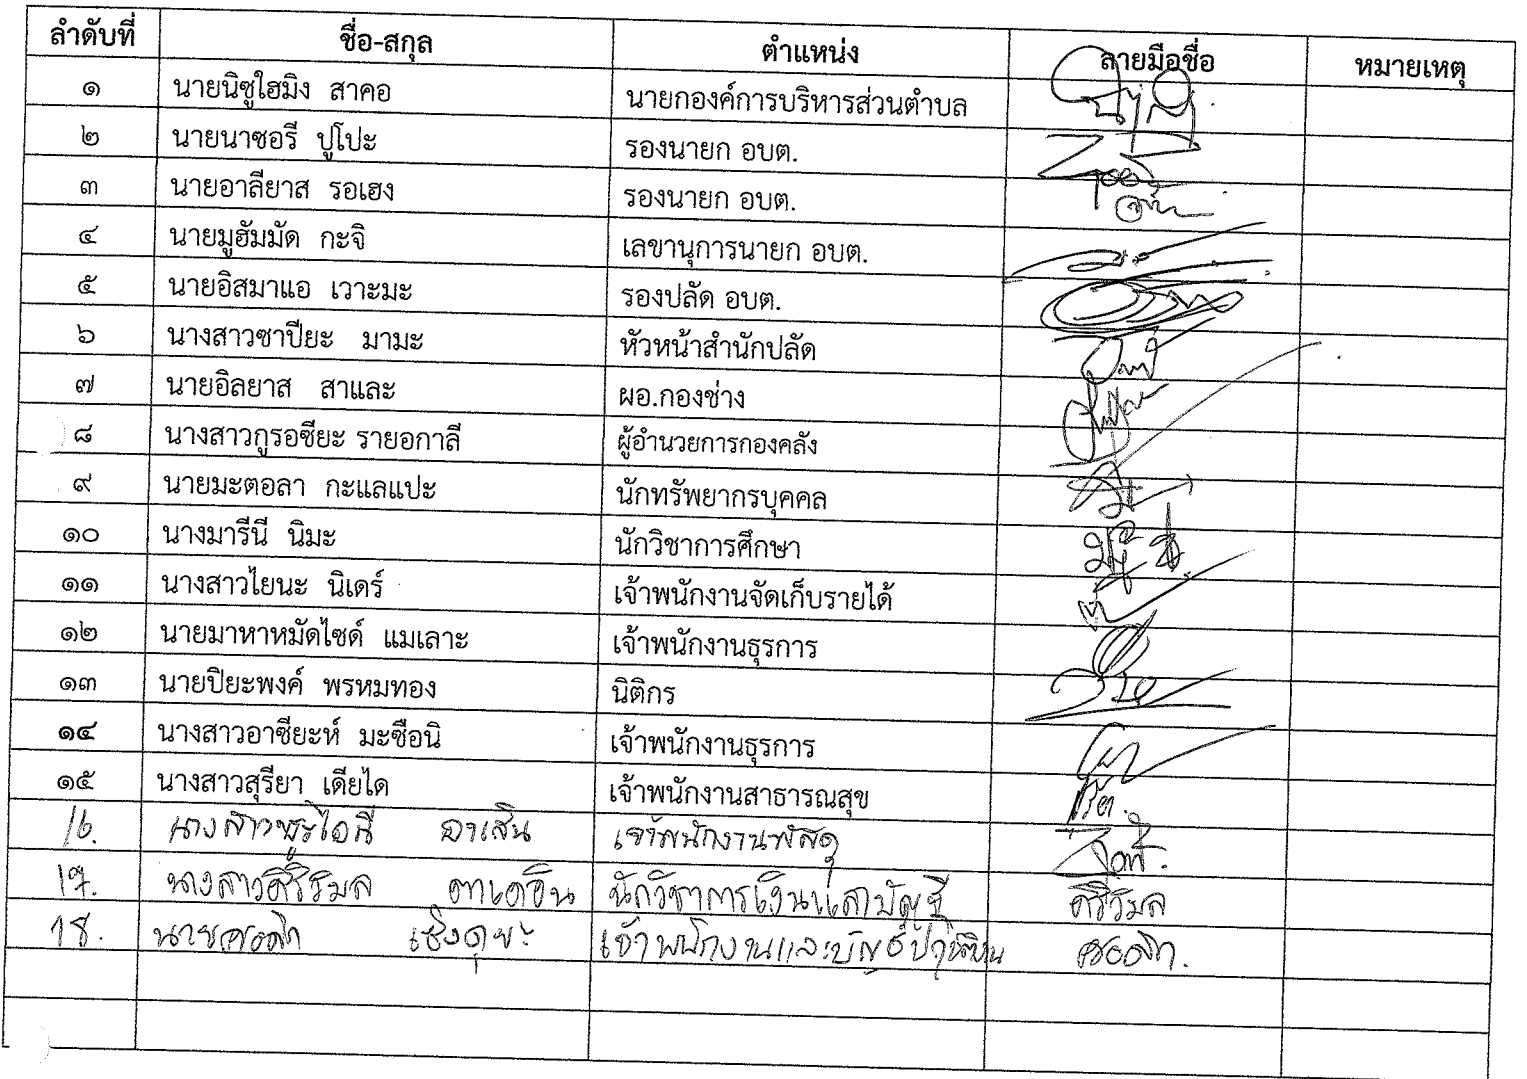 ลำดับที่ ชื่อ-สกุล ตำแหน่ง ลายมือชื่อ หมายเหตุ
๑ นายนิซูไฮมิง สาคอ นายกองค์การบริหารส่วนตำบล
๒ นายนาซอรี ปูโปะ รองนายก อบต.
๓ นายอาลียาส รอเฮง รองนายก อบต.
๔ นายมูฮัมมัด กะจิ เลขานุการนายก อบต.
๕ นายอิสมาแอ เวาะมะ รองปลัด อบต.
๖ นางสาวซาปียะ มามะ หัวหน้าสำนักปลัด
๗ นายอิลยาส สาและ ผอ.กองช่าง
๘ นางสาวกูรอซียะ รายอกาลี ผู้อำนวยการกองคลัง
๙ นายมะตอลา กะแลแปะ นักทรัพยากรบุคคล
๑๐ นางมารีนี นิมะ นักวิชาการศึกษา
๑๑ นางสาวไยนะ นิเดร์ เจ้าพนักงานจัดเก็บรายได้
๑๒ นายมาหาหมัดไซด์ แมเลาะ เจ้าพนักงานธุรการ
๑๓ นายปิยะพงค์ พรหมทอง นิติกร
๑๔ นางสาวอาซียะห์ มะซือนิ เจ้าพนักงานธุรการ
๑๕ นางสาวสุรียา เดียได เจ้าพนักงานสาธารณสุข
16. อาเส็น เจ้าพนักงานพัสดุ
17. นางสาวศิริวิมล นักวิชาการเงินและบัญชี ศิริวิมล
18.